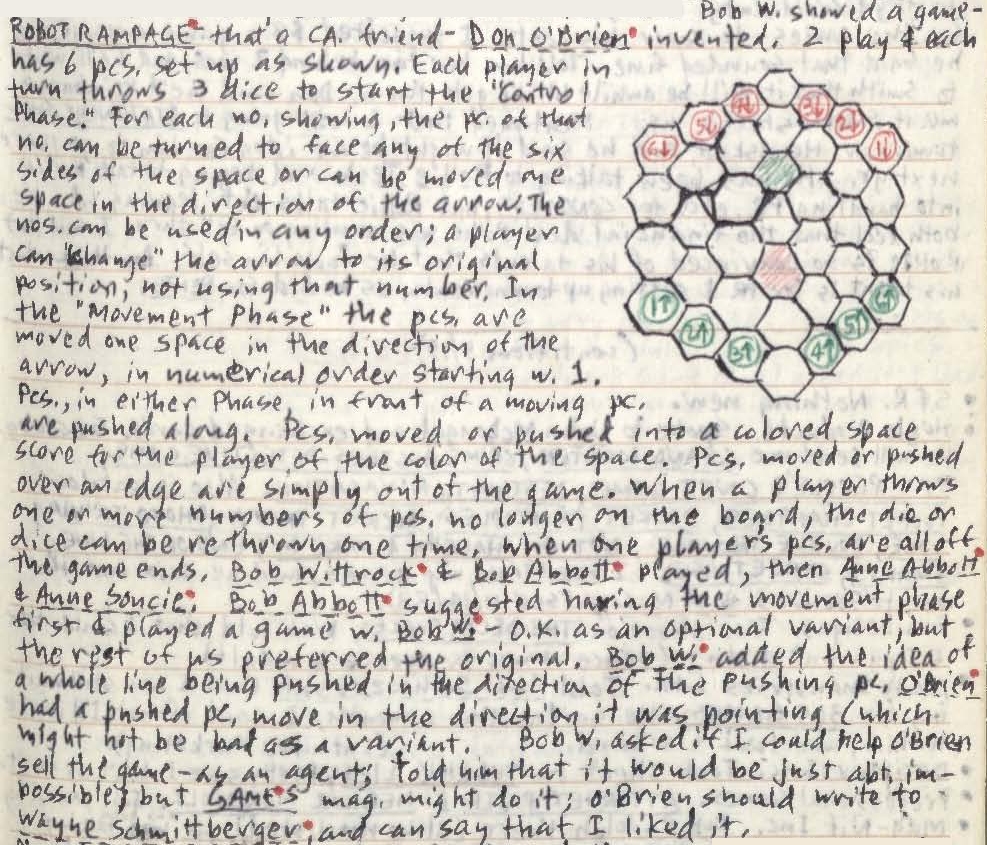 Bob W. showed a game-
ROBOT RAMPAGE that a CA. friend- Don O'Brien invented. 2 play & each
has 6 pcs. set up as shown. Each player in
turn throws 3 dice to start the "Control
Phase." For each no. showing, the pc. of that
no. can be turned to face any of the six
sides of the space or can be moved one
space in the direction of the arrow. The
nos. can be used in any order; a player
can "change" the arrow to its original
position, not using that number. In
the "Movement Phase" the pcs. are
moved one space in the direction of the
arrow, in numerical order starting w. 1.
Pcs., in either Phase, in front of a moving pc.
are pushed along. Pcs. moved or pushed into a colored space
score for the player of the color of the space. Pcs. moved or pushed
over an edge are simply out of the game. When a player throws
one or more numbers of pcs. no longer on the board, the die or
dice can be rethrown one time. When one player's pcs. are all off
the game ends. Bob Wittrock & Bob Abbott played, then Anne Abbott
& Anne Soucie. Bob Abbott suggested having the movement phase
first & played a game w. Bob W. - O.K. as an optional variant, but
the rest of us preferred the original. Bob W. added the idea of
a whole line being pushed in the direction of the pushing pc. O'Brien
had a pushed pc. move in the direction it was pointing (which
might not be bad as a variant. Bob W. asked if I could help O'Brien
sell the game - as an agent; told him that it would be just abt. im-
possible, but GAMES mag. might do it; O'Brien should write to
Wayne Schmittberger, and can say that I liked it.
6↓ 5↓ 4↓ 3↓ 2↓ 1↓
1↑ 2↑ 3↑ 4↑ 5↑ 6↑